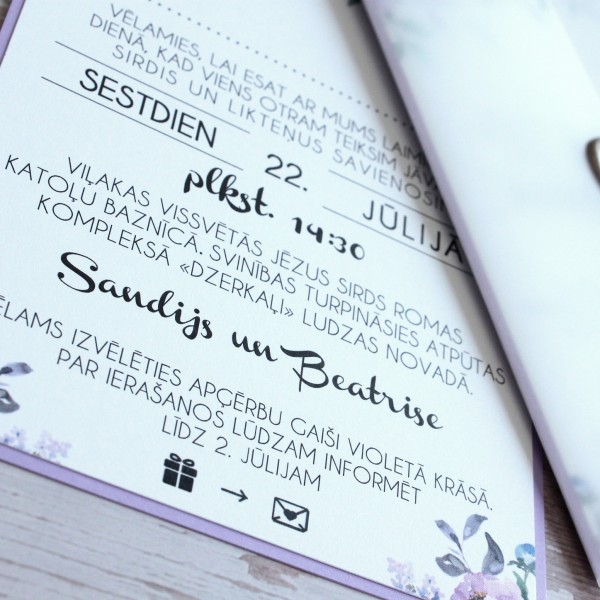 VĒLAMIES, LAI ESAT AR MUMS LAIMĪ
DIENĀ, KAD VIENS OTRAM TEIKSIM JĀVĀ
SIRDIS UN LIKTEŅUS SAVIENOSI
SESTDIEN 22. JŪLIJĀ
plkst. 14:30
VIĻAKAS VISSVĒTĀS JĒZUS SIRDS ROMAS
KATOĻU BAZNĪCĀ. SVINĪBAS TURPINĀSIES ATPŪTAS
KOMPLEKSĀ «DZERKAĻI» LUDZAS NOVADĀ.
Sandijs un Beatrise
ĒLAMS IZVĒLĒTIES APĢĒRBU GAIŠI VIOLETĀ KRĀSĀ.
PAR IERAŠANOS LŪDZAM INFORMĒT
LĪDZ 2. JŪLIJAM